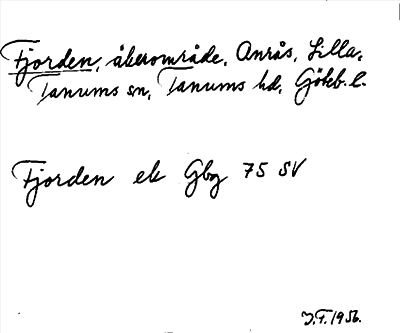 Fjorden, åkerområde, Anrås, Lilla,
Tanums sn, Tanums hd, Göteb. l.
Fjorden ek Gbg 75 SV
J.F. 1956.